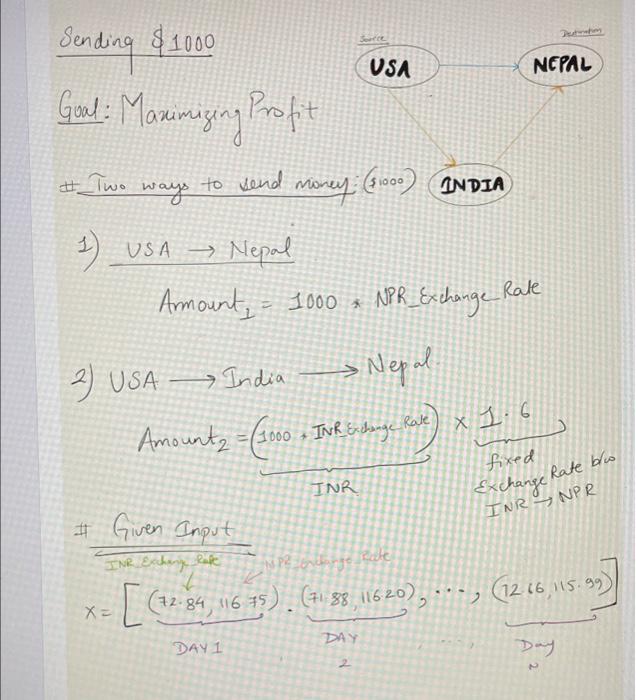 Sending $1000
Source
Destination
USA
NEPAL
Goal: Maximizing Profit
# Two ways to send money: ($1000)
INDIA
1) USA → Nepal
Amount₁ = 1000 * NPR_Exchange_Rate
2) USA → India → Nepal
Amount₂ = (1000 * INR_Exchange_Rate) × 1.6
INR
fixed
Exchange Rate b/w
INR → NPR
# Given Input
INR Exchange Rate
NPR exchange Rate
x = [(72.84, 116.75), (71.88, 116.20), ..., (72.66, 115.99)]
DAY 1
DAY
2
....,
Day
N